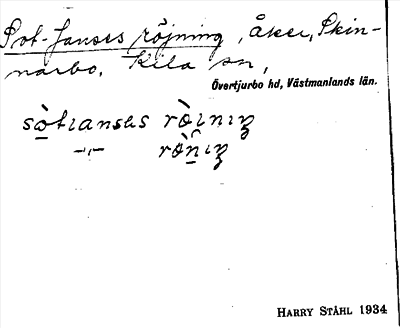 Sot-Janses röjning, åker, Skin-
narbo, Kila sn,
Övertjurbo hd, Västmanlands län.
sò̲tɩansəs ròɩnɩŋ
–„– 
HARRY STÅHL 1934